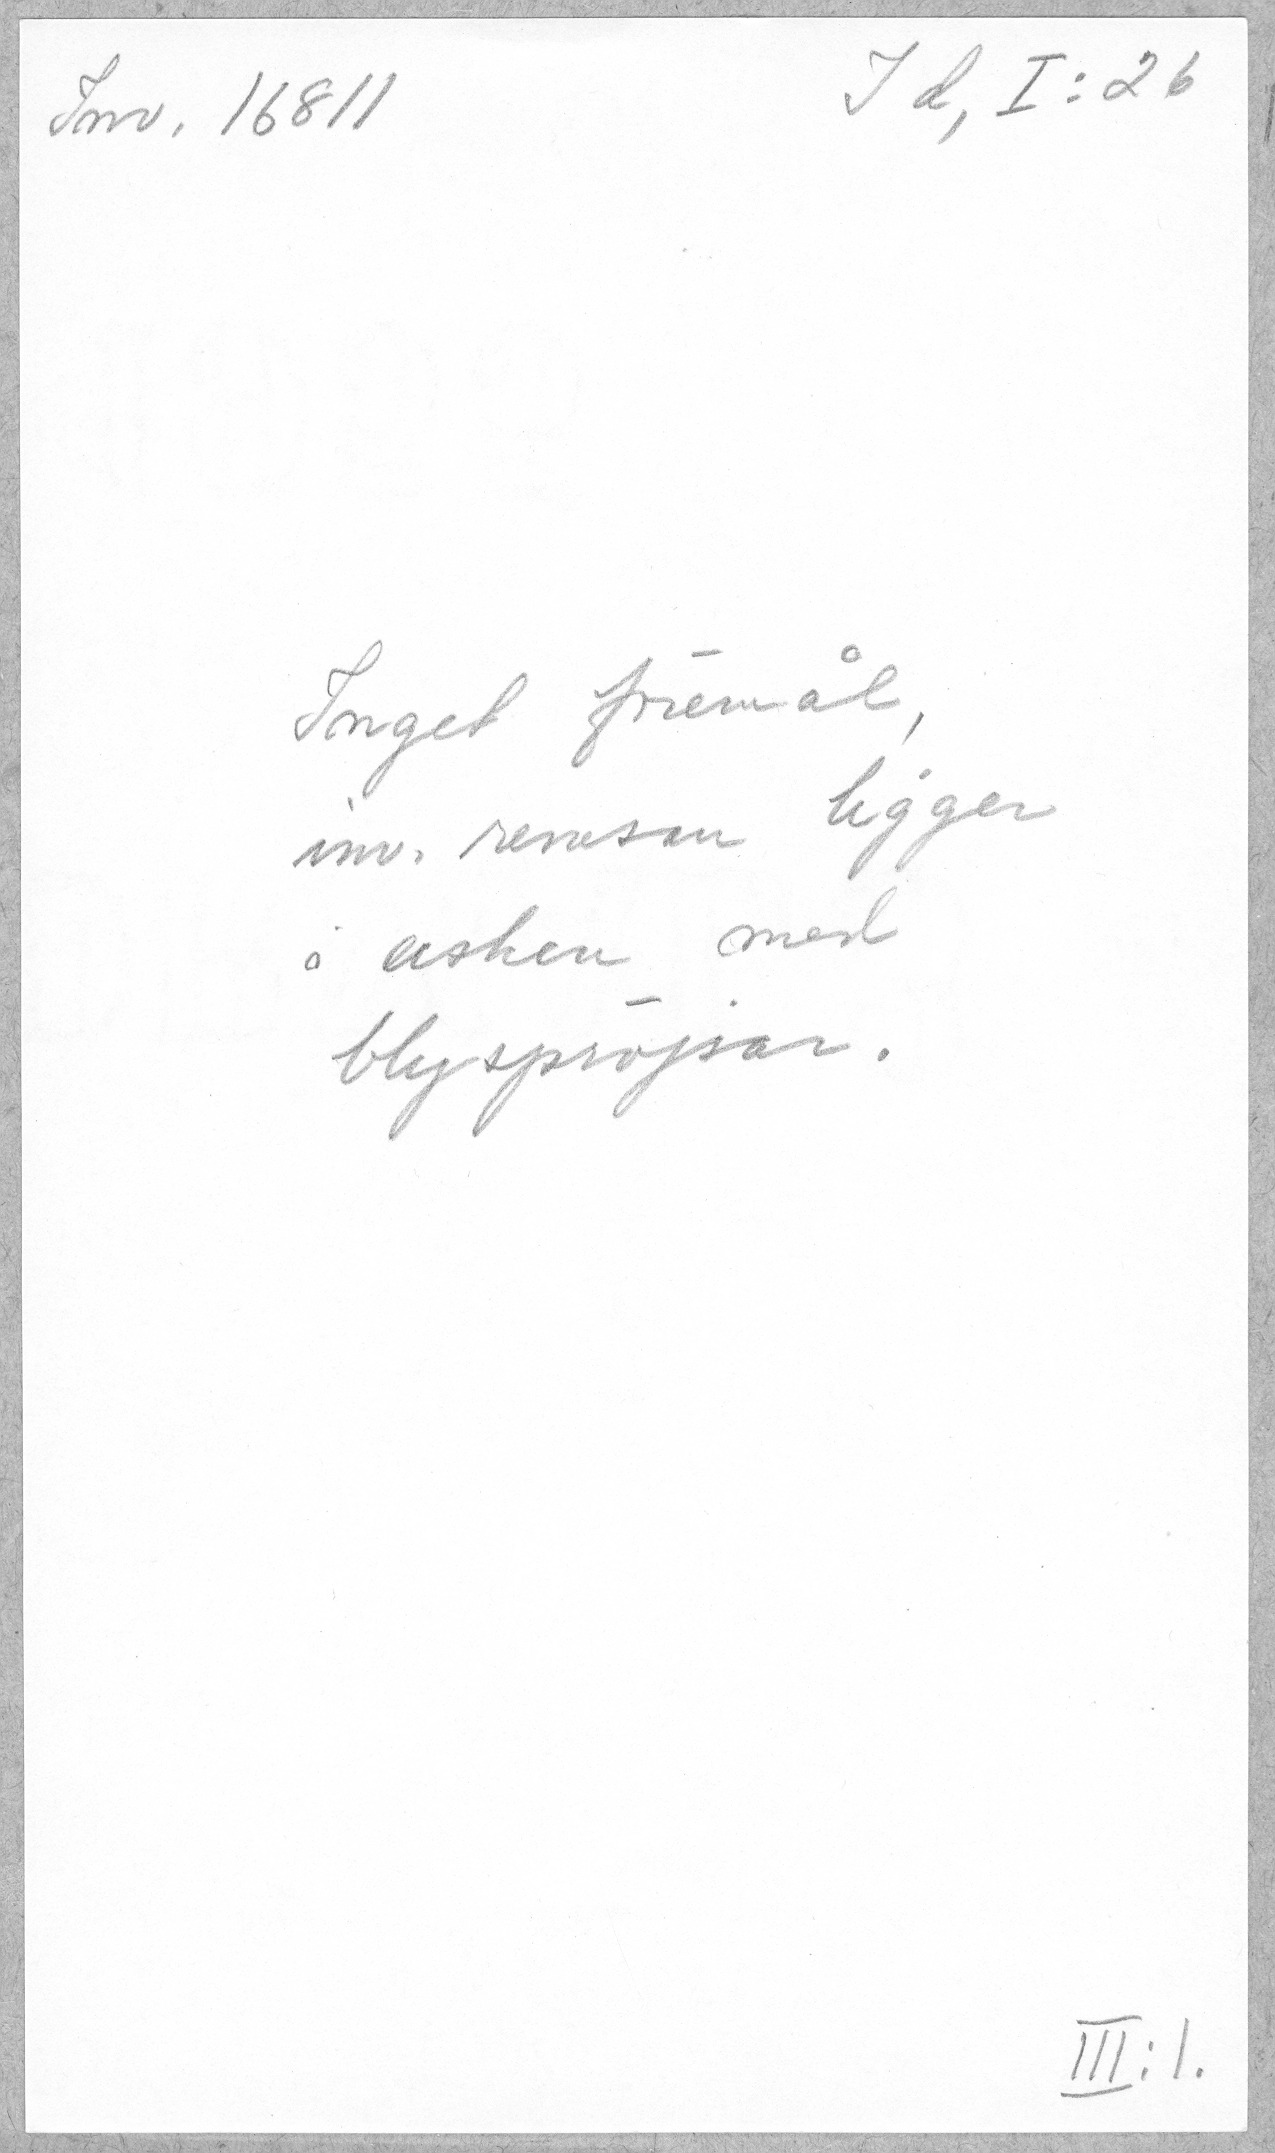 Inv. 16811
I d, I:26
Inget föremål,
inv. remsan ligger
i asken med
blyspröjsar.
III:1.